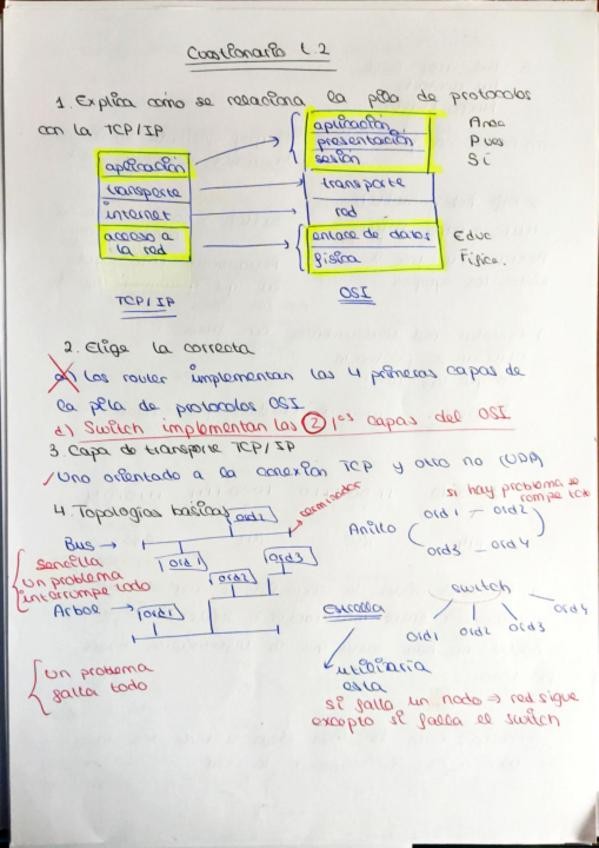 Cuestionario t.2
1. Explica cómo se relaciona la pila de protocolos
con la TCP/IP
aplicación
transporte
internet
acceso a
la red
TCP/IP
aplicación Anda
presentación Pues
sesión Si
transporte
red
enlace de datos Educ
física Física.
OSI
2. Elige la correcta
a) Los router implementan las 4 primeras capas de
la pila de protocolos OSI
d) Switch implementan las 2 1ªs capas del OSI
3. Capa de transporte TCP/IP
✓ Uno orientado a la conexión TCP y otro no (UDP)
4. Topologías básicas
Bus →
ord2
terminador
ord1
ord3
sencilla
un problema
interrumpe todo
Arbol →
ord1
ord2
un problema
falla todo
si hay problema se
rompe todo
Anillo
ord1 - ord2
ord3 - ord4
Estrella
switch
ord1 ord2 ord3 ord4
utilizaría
esta
si falla un nodo ⇒ red sigue
excepto si falla el switch